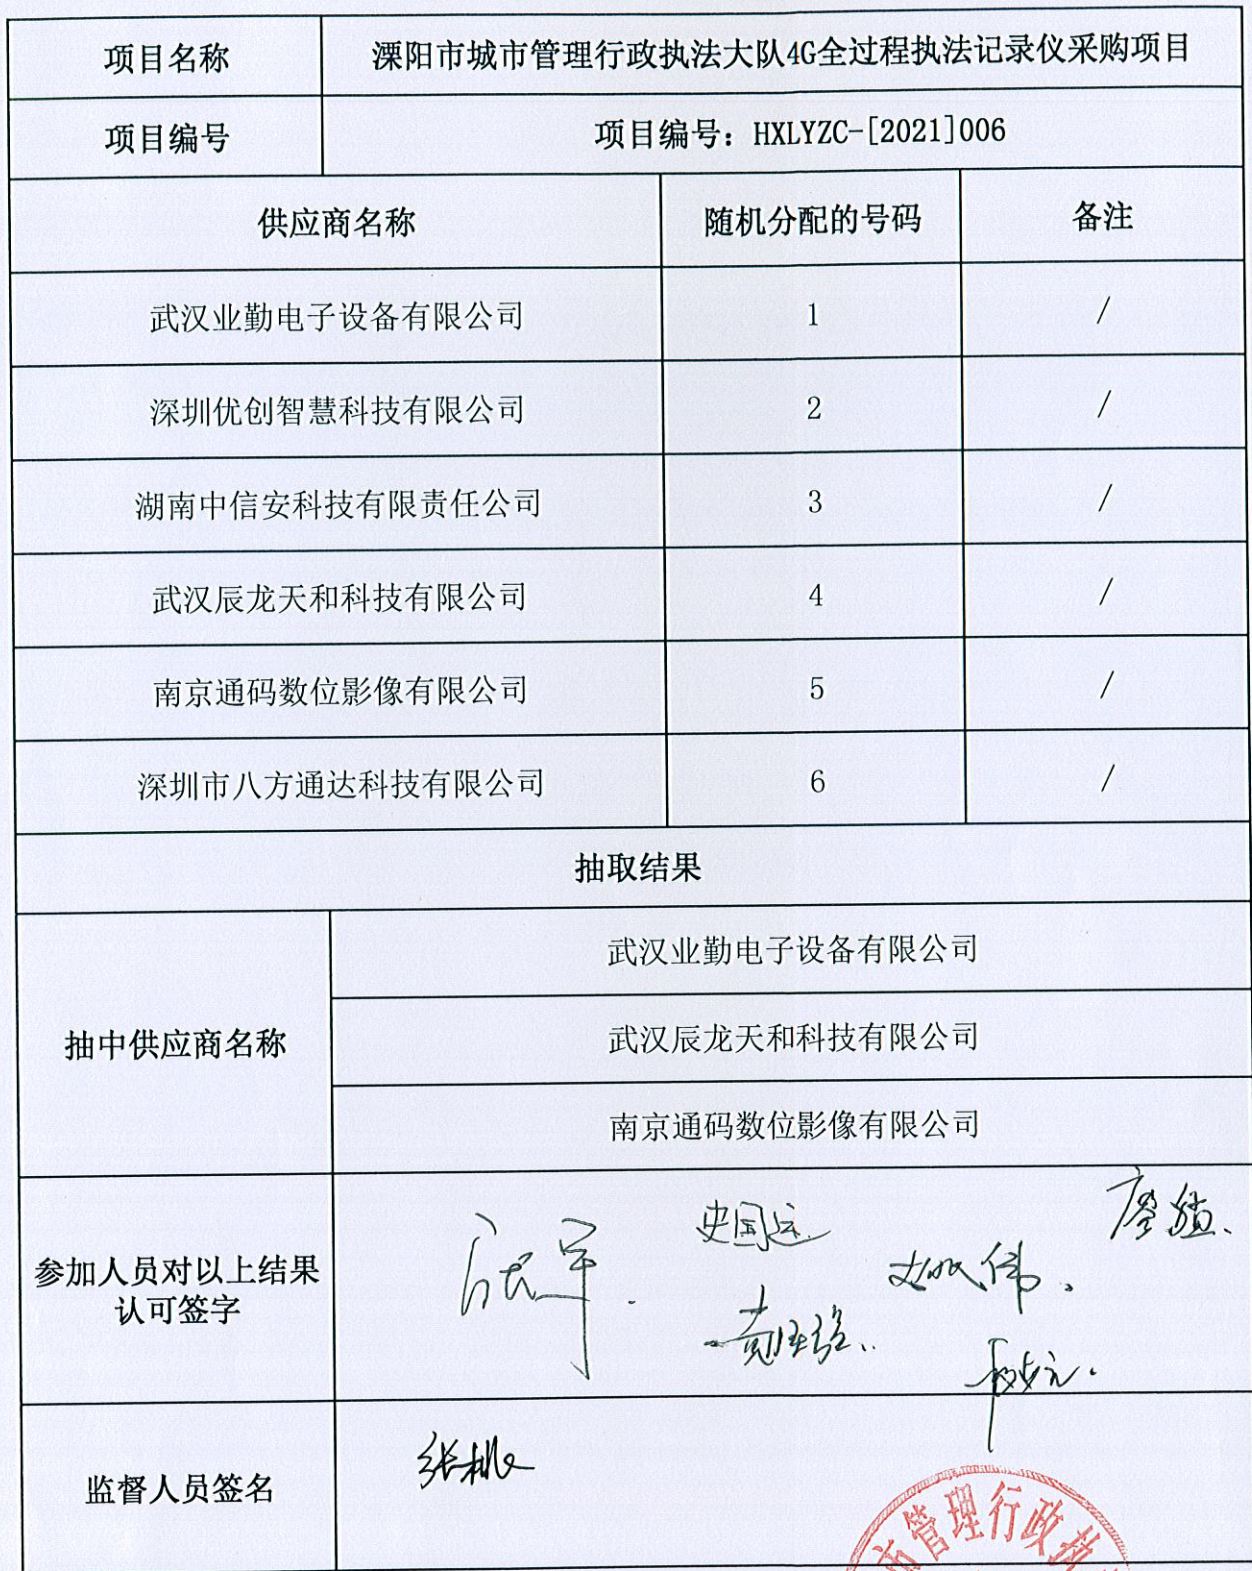 项目名称 溧阳市城市管理行政执法大队4G全过程执法记录仪采购项目
项目编号 项目编号：HXLYZC-[2021]006
供应商名称 随机分配的号码 备注
武汉业勤电子设备有限公司 1 /
深圳优创智慧科技有限公司 2 /
湖南中信安科技有限责任公司 3 /
武汉辰龙天和科技有限公司 4 /
南京通码数位影像有限公司 5 /
深圳市八方通达科技有限公司 6 /
抽取结果
抽中供应商名称
武汉业勤电子设备有限公司
武汉辰龙天和科技有限公司
南京通码数位影像有限公司
参加人员对以上结果
认可签字
史国运
监督人员签名
市管理行政执